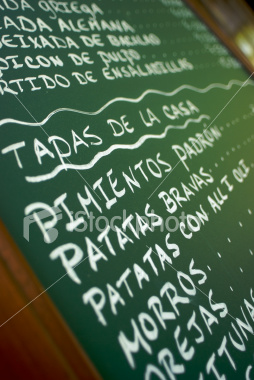 ADA GRIEGA
LADA ALEMANA
SEIXADA DE BACALAO
PICON DE PULPO
RTIDO DE ENSALADILLAS
TAPAS DE LA CASA
PIMIENTOS PADRÓN
PATATAS BRAVAS
PATATAS CON ALL I OLI
MORROS
OREJAS
ITUNAS
iStockphoto